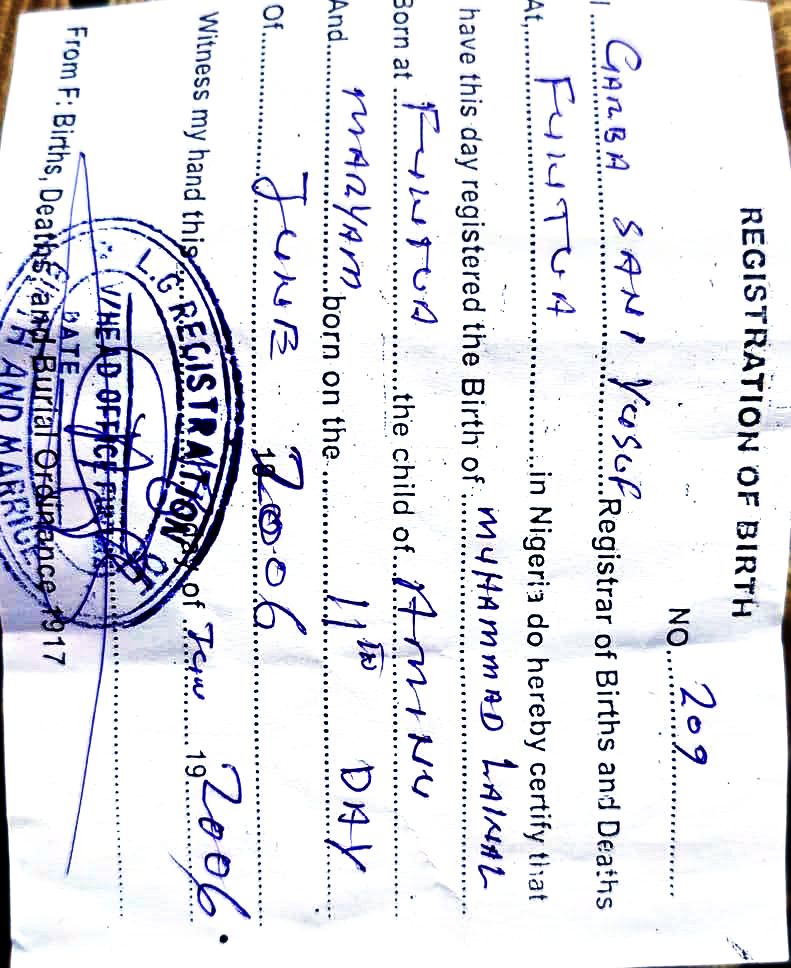 REGISTRATION OF BIRTH
NO....209....
I....GARBA SANI YUSUF....Registrar of Births and Deaths
At,....FUNTUA....in Nigeria do hereby certify that
have this day registered the Birth of....MUHAMMAD
Born at....FUNTUA....the child of....AMINU
And....MARYAM....born on the....11TH DAY
Of....JUNE....19 2006
Witness my hand this....day of....19 2006.
From F: Births, Deaths and Burial Ordinance 1917
L.G REGISTRATION
V/HEAD OFFICE
DATE
AND MARRIGE